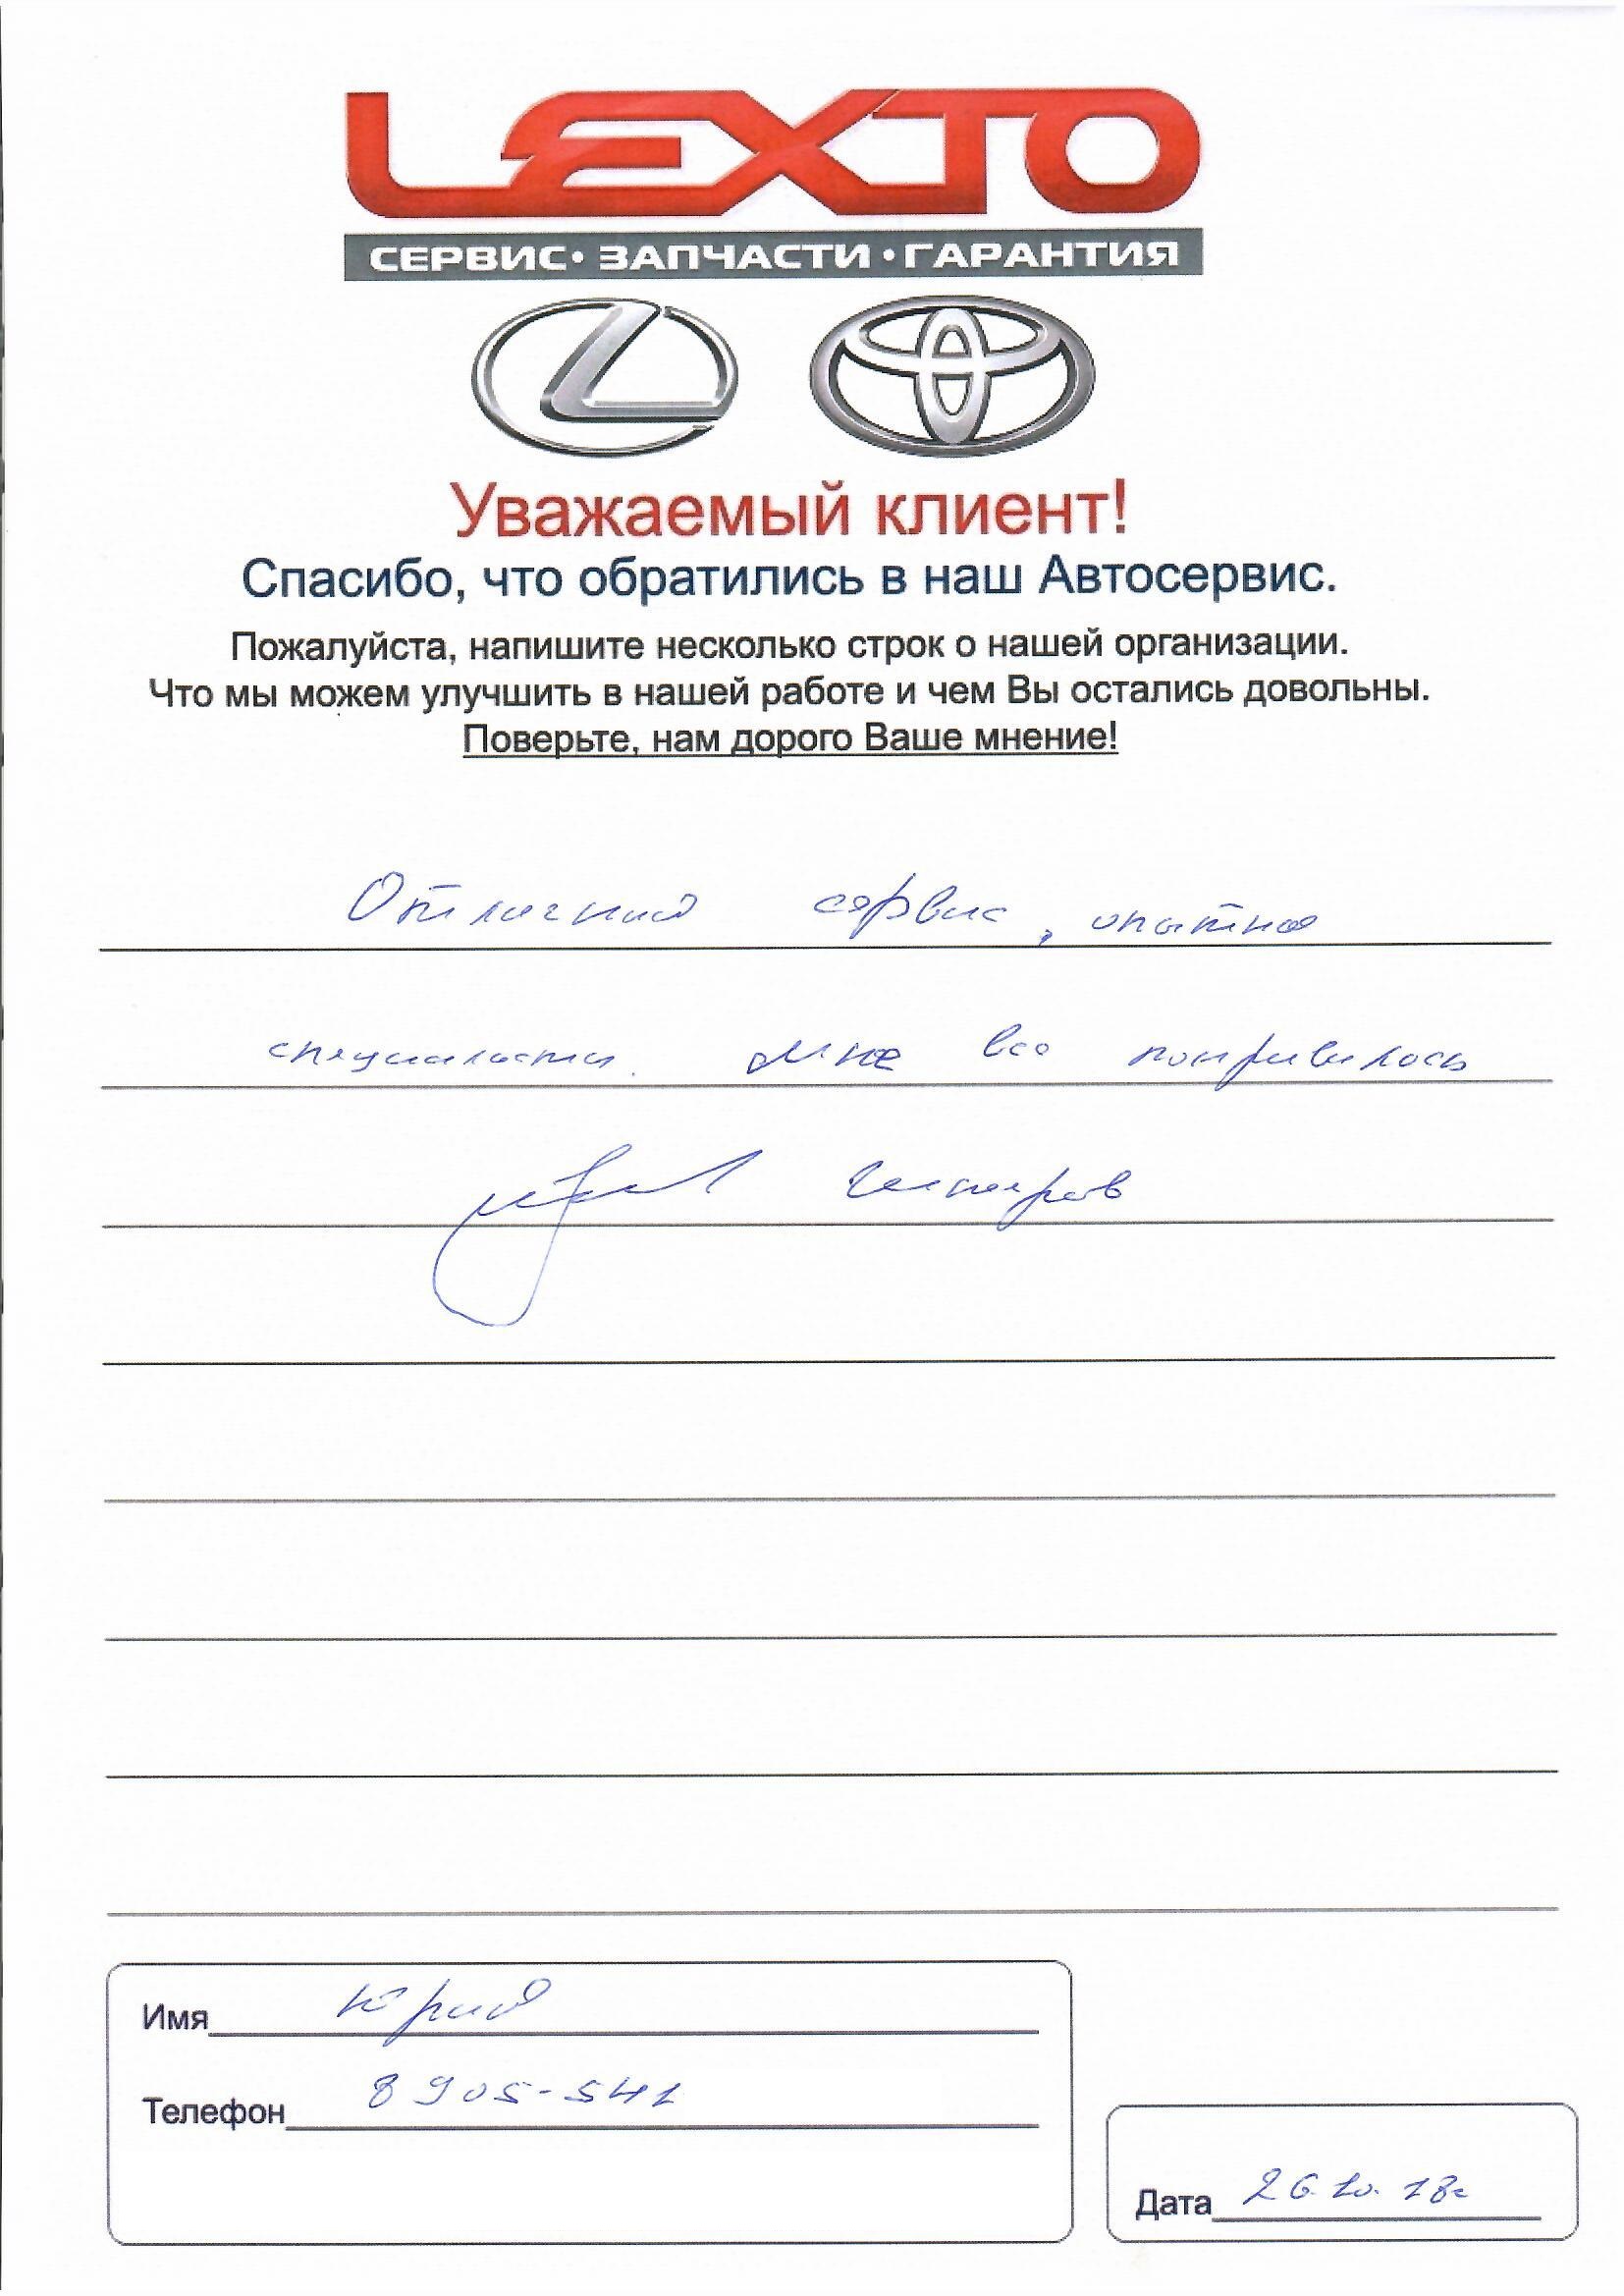 LEXTO
СЕРВИС • ЗАПЧАСТИ • ГАРАНТИЯ
Уважаемый клиент!
Спасибо, что обратились в наш Автосервис.
Пожалуйста, напишите несколько строк о нашей организации.
Что мы можем улучшить в нашей работе и чем Вы остались довольны.
Поверьте, нам дорого Ваше мнение!
Отличный сервис, опытные
специалисты. Мне все понравилось
Имя Юрий
Телефон 8905-541
Дата 26.10.18г